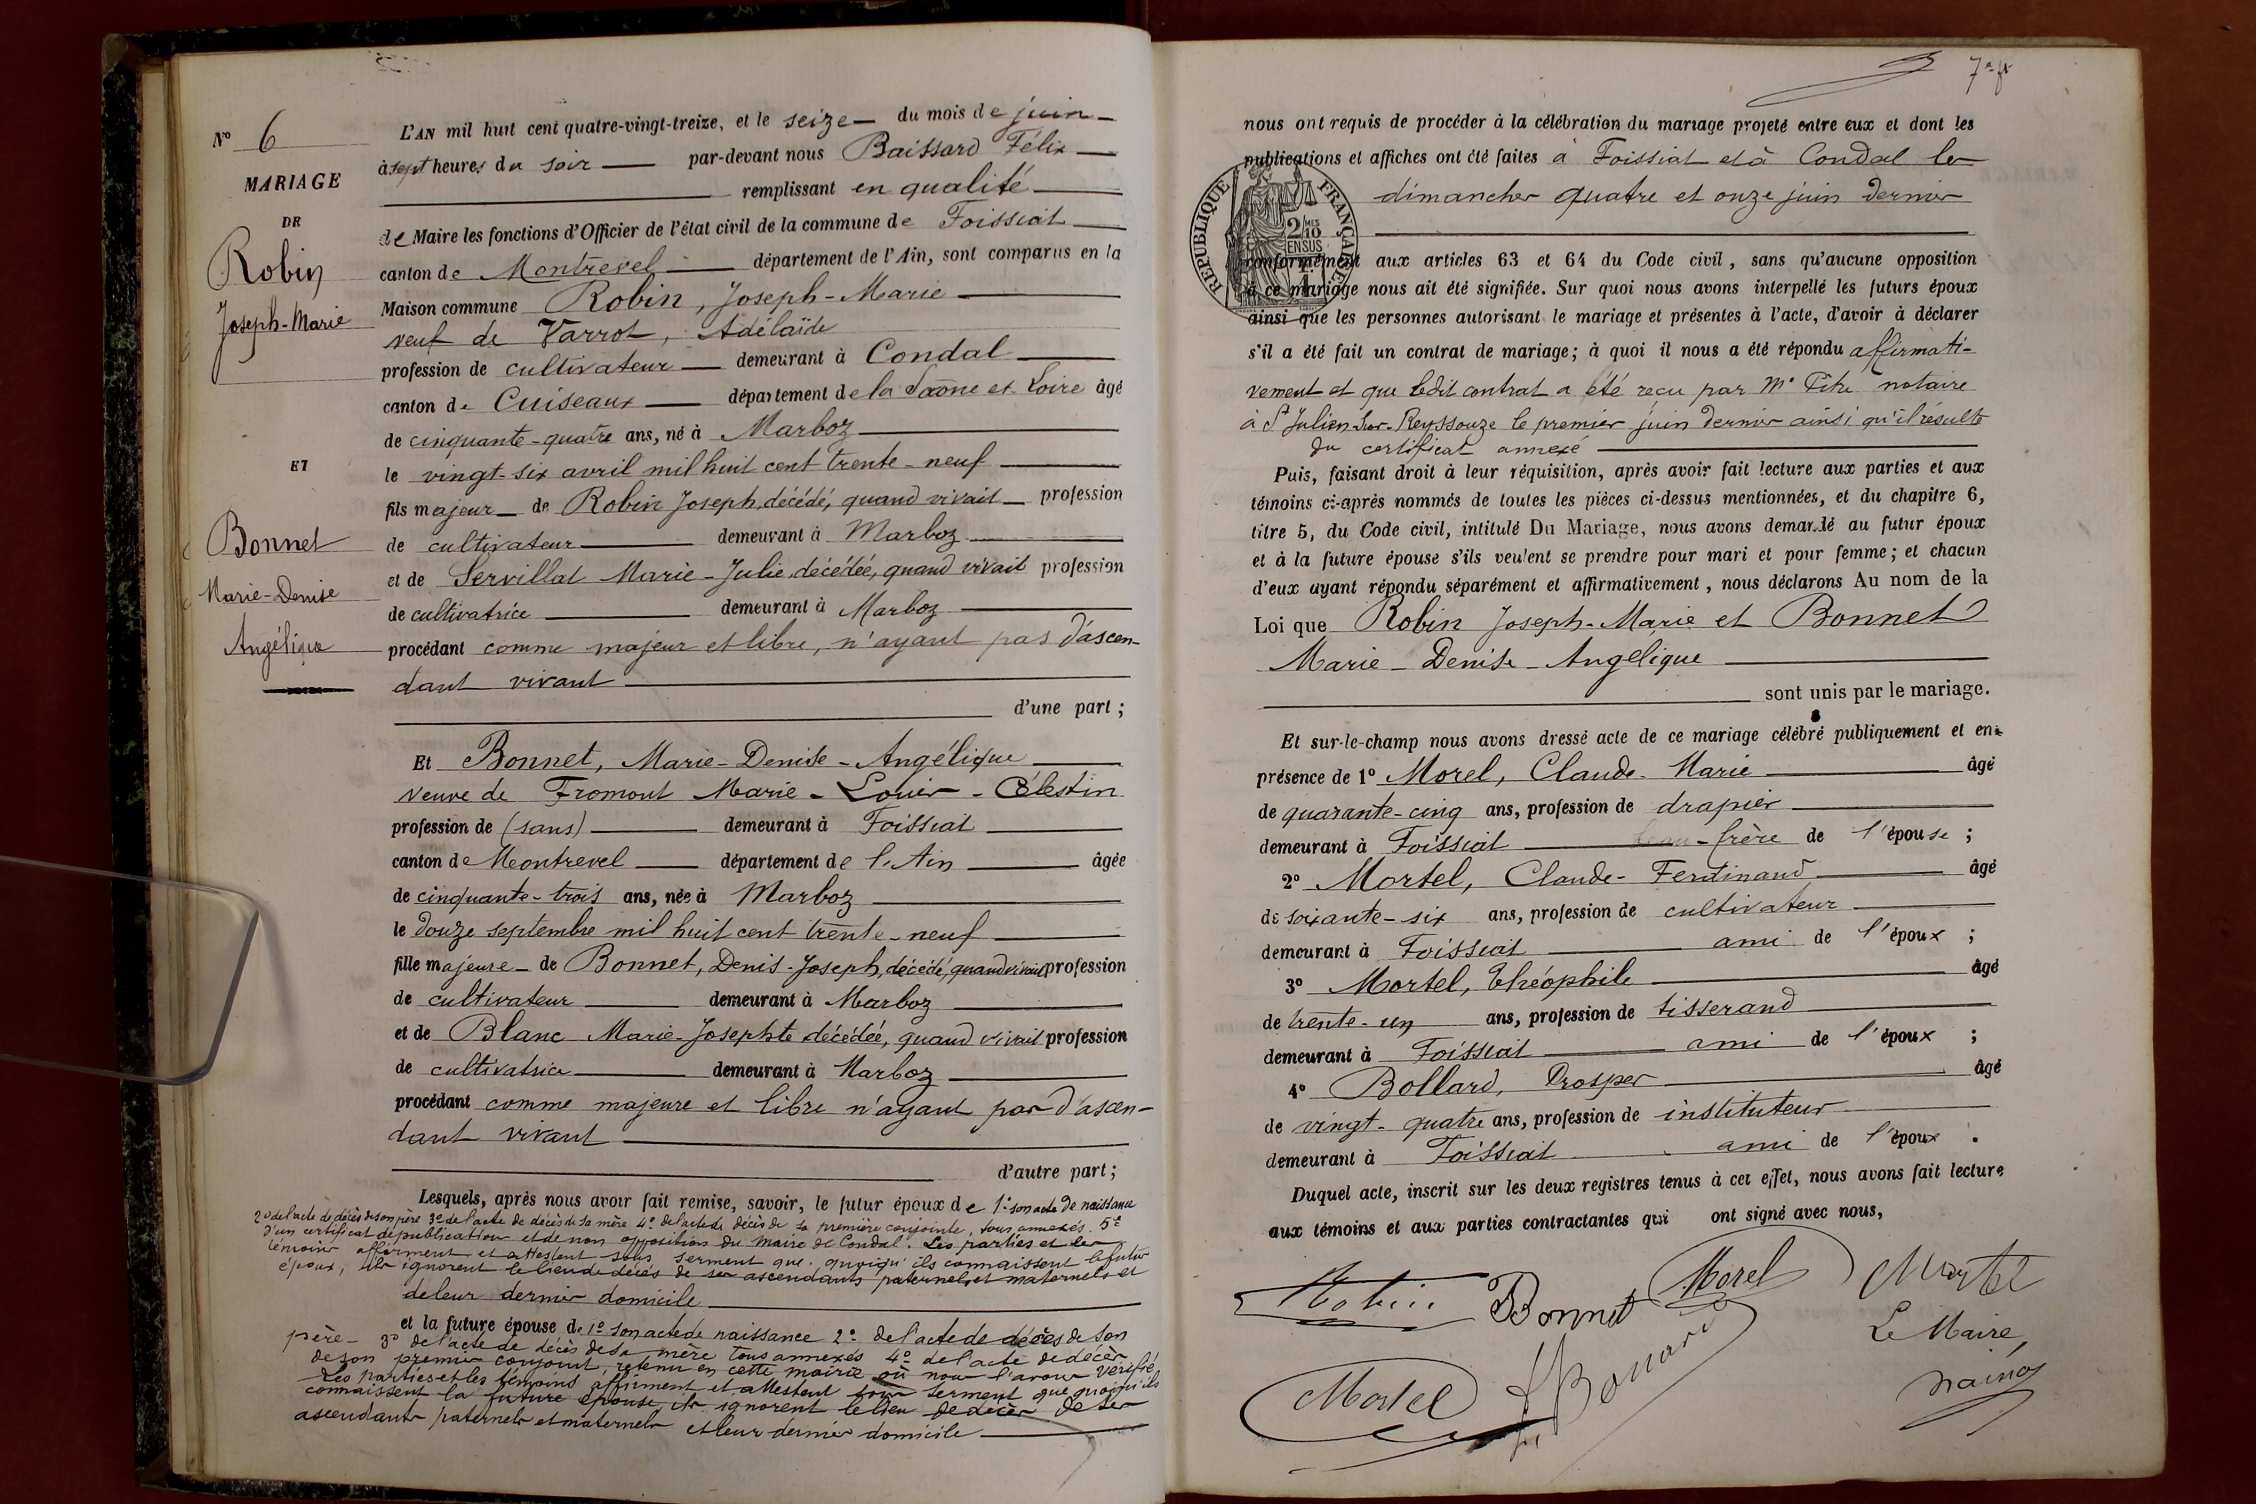 Nº 6
MARIAGE
DE
Robin
Joseph-Marie
ET
Bonnet
Marie-Denise
Angélique
L'AN mil huit cent quatre-vingt-treize, et le seize du mois de juin
à sept heures du soir par-devant nous Baissard Félix
remplissant en qualité
de Maire les fonctions d'Officier de l'état civil de la commune de Foissiat
canton de Montrevel département de l'Ain, sont comparus en la
Maison commune Robin, Joseph-Marie
veuf de Varrot, Adélaïde
profession de cultivateur demeurant à Condal
canton de Cuiseaux département de la Saône et Loire âgé
de cinquante-quatre ans, né à Marboz
le vingt-six avril mil huit cent trente-neuf
fils majeur de Robin Joseph, décédé, quand vivait profession
de cultivateur demeurant à Marboz
et de Servillat Marie-Julie, décédée, quand vivait profession
de cultivatrice demeurant à Marboz
procédant comme majeur et libre, n'ayant pas d'ascen-
dant vivant
d'une part;
Et Bonnet, Marie-Denise-Angélique
veuve de Fromont Marie-Louis-Célestin
profession de (sans) demeurant à Foissiat
canton de Montrevel département de l'Ain âgée
de cinquante-trois ans, née à Marboz
le douze septembre mil huit cent trente-neuf
fille majeure de Bonnet, Denis-Joseph, décédé, quand vivait profession
de cultivateur demeurant à Marboz
et de Blanc Marie-Josephte décédée, quand vivait profession
de cultivatrice demeurant à Marboz
procédant comme majeure et libre n'ayant pas d'ascen-
dant vivant
d'autre part;
Lesquels, après nous avoir fait remise, savoir, le futur époux de 1º son acte de naissance
2º de l'acte de décès de son père 3º de l'acte de décès de sa mère 4º de l'acte de décès de sa première conjointe, tous annexés. 5º
d'un certificat de publication et de non opposition du maire de Condal. Les parties et les
témoins affirment et attestent sous serment que, quoiqu'ils connaissent le futur
époux, ils ignorent le lieu de décès de ses ascendants paternels et maternels et
de leur dernier domicile
et la future épouse de 1º son acte de naissance 2º de l'acte de décès de son
père 3º de l'acte de décès de sa mère tous annexés 4º de l'acte de décès
de son premier conjoint, retenu en cette mairie où nous l'avons vérifié
Les parties et les témoins affirment et attestent sous serment que quoiqu'ils
connaissent la future épouse, ils ignorent le lieu de décès de ses
ascendants paternels et maternels et leur dernier domicile
nous ont requis de procéder à la célébration du mariage projeté entre eux et dont les
publications et affiches ont été faites à Foissiat et à Condal les
dimanches quatre et onze juin dernier
RÉPUBLIQUE FRANÇAISE
2/10 EN SUS
conformément aux articles 63 et 64 du Code civil, sans qu'aucune opposition
à ce mariage nous ait été signifiée. Sur quoi nous avons interpellé les futurs époux
ainsi que les personnes autorisant le mariage et présentes à l'acte, d'avoir à déclarer
s'il a été fait un contrat de mariage; à quoi il nous a été répondu affirmati-
vement et que ledit contrat a été reçu par Me notaire
à St Julien-sur-Reyssouze le premier juin dernier ainsi qu'il résulte
du certificat annexé
Puis, faisant droit à leur réquisition, après avoir fait lecture aux parties et aux
témoins ci-après nommés de toutes les pièces ci-dessus mentionnées, et du chapitre 6,
titre 5, du Code civil, intitulé Du Mariage, nous avons demandé au futur époux
et à la future épouse s'ils veulent se prendre pour mari et pour femme; et chacun
d'eux ayant répondu séparément et affirmativement, nous déclarons Au nom de la
Loi que Robin Joseph-Marie et Bonnet
Marie-Denise-Angélique
sont unis par le mariage.
Et sur-le-champ nous avons dressé acte de ce mariage célébré publiquement et en
présence de 1º Morel, Claude-Marie âgé
de quarante-cinq ans, profession de drapier
demeurant à Foissiat beau-frère de l'épouse;
2º Mortel, Claude-Ferdinand âgé
de soixante-six ans, profession de cultivateur
demeurant à Foissiat ami de l'époux;
3º Mortel, Théophile âgé
de trente-un ans, profession de tisserand
demeurant à Foissiat ami de l'époux;
4º Bollard, Prosper âgé
de vingt-quatre ans, profession de instituteur
demeurant à Foissiat ami de l'époux.
Duquel acte, inscrit sur les deux registres tenus à cet effet, nous avons fait lecture
aux témoins et aux parties contractantes qui ont signé avec nous,
Robin Bonnet Morel Mortel
Le Maire,
Mortel Bollard